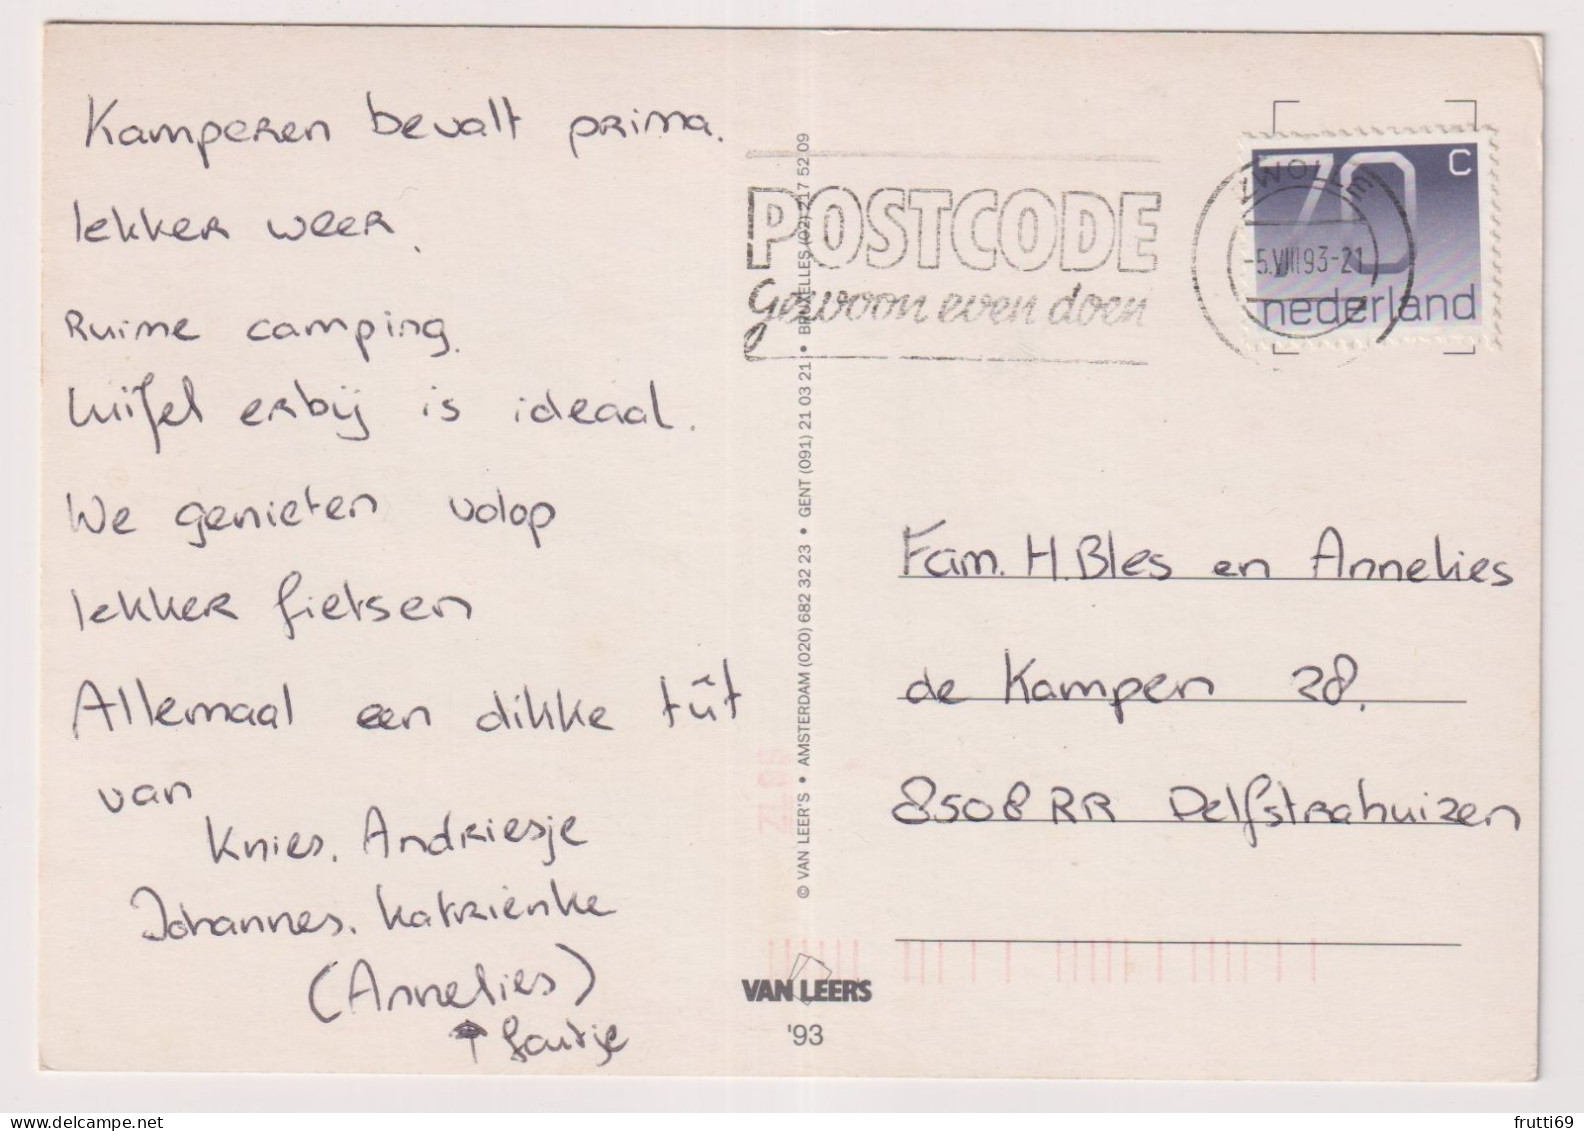 Kamperen bevalt prima.
lekker weer.
Ruime camping.
Luifel erbij is ideaal.
We genieten volop
lekker fietsen
Allemaal een dikke tût
van
Knies. Andriesje
Johannes. Katriënke
(Annelies)
foutje
© VAN LEER'S • AMSTERDAM (020) 682 32 23 • GENT (091) 21 03 21 • BRUXELLES (02) 217 52 09
VAN LEER'S
'93
POSTCODE
Gewoon even doen
ZWOLLE
-5.VIII93-21
70 c
nederland
Fam. H. Bles en Annelies
de Kampen 28.
8508 RR Delfstrahuizen
frutti69